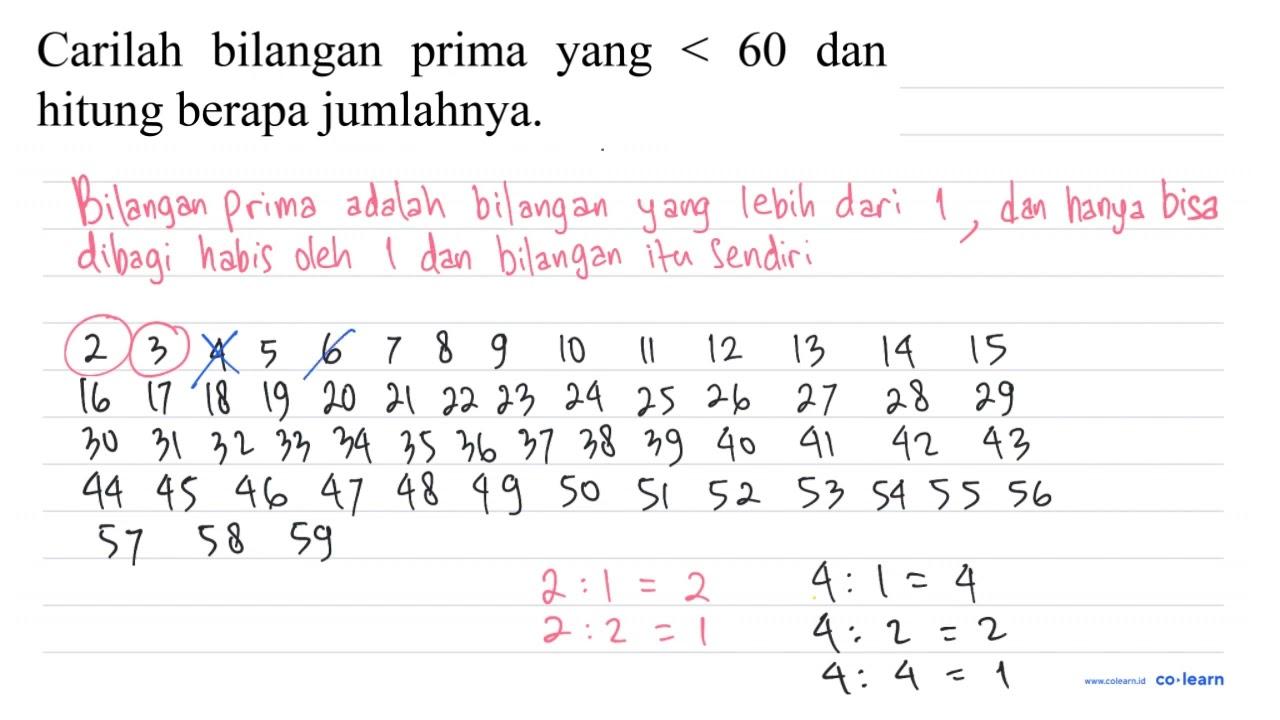 Carilah bilangan prima yang < 60 dan
hitung berapa jumlahnya.
Bilangan prima adalah bilangan yang lebih dari 1, dan hanya bisa
dibagi habis oleh 1 dan bilangan itu sendiri
2 3 4 5 6 7 8 9 10 11 12 13 14 15
16 17 18 19 20 21 22 23 24 25 26 27 28 29
30 31 32 33 34 35 36 37 38 39 40 41 42 43
44 45 46 47 48 49 50 51 52 53 54 55 56
57 58 59
2 : 1 = 2 4 : 1 = 4
2 : 2 = 1 4 : 2 = 2
4 : 4 = 1
www.colearn.id co·learn